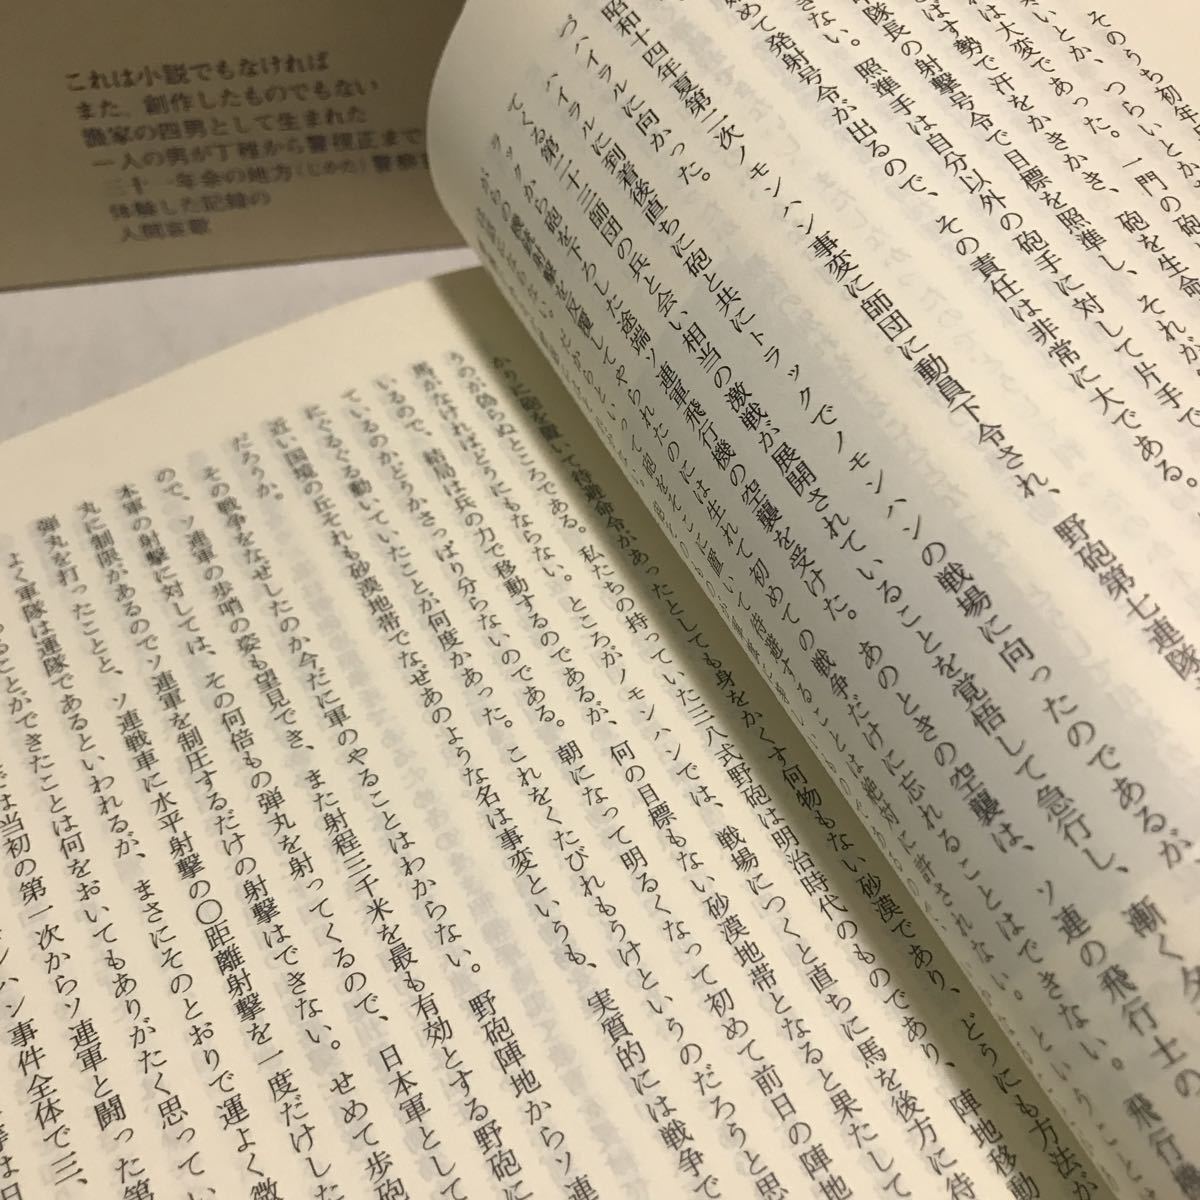 これは小説でもなければ
また、創作したものでもない
漁家の四男として生まれた
一人の男が丁稚から警視正まで
三十一年余の地方(じかた)警察
体験した記録の
人間哀歌
そのうち初年
寒いとか、つらいとか
れは大変であった。一門の砲
とばす勢で汗をかきかき、砲を生命
中隊長の射撃号令で目標を照準し、それが
きない。照準手は自分以外の砲手に対して片手で
始めて発射号令が出るので、その責任は非常に大である。
昭和十四年夏第二次ノモンハン事変に師団に動員下令され、野砲第七連隊
づハイラルに向かった。
ハイラルに到着後直ちに砲と共にトラックでノモンハンの戦場に向ったのであるが、漸く夕
てくる第二十三師団の兵と会い相当の激戦が展開されていることを覚悟して急行し、
ラックから砲を下ろした途端ソ連軍飛行機の空襲を受けた。あのときの空襲は、ソ連の飛行士の
がらの機銃射撃を反覆してやられたのには生れて初めての戦争だけに忘れることはできない。飛行機
かりに砲を置いて待避命令があったとしても身をかくす何物もない砂漠であり、どうにも方法が
うのが偽らぬところである。私たちの持っていた三八式野砲は明治時代のものであり、陣地移動
馬がなければどうにもならない。ところがノモンハンでは、戦場につくと直ちに馬を後方に待
いるので、結局は兵の力で移動するのであるが、何の目標もない砂漠地帯となると果たして
ているのかどうかさっぱり分らないのである。朝になって明るくなって初めて前日の陣地
にぐるぐる動いていたことが何度かあった。これをくたびれもうけというのだろうと思
近い国境の丘それも砂漠地帯でなぜあのような名は事変というも、実質的には戦争で
だろうか。
その戦争をなぜしたのか今だに軍のやることはわからない。野砲陣地からソ連
ので、ソ連軍の歩哨の姿も望見でき、また射程三千米を最も有効とする野砲に
本軍の射撃に対しては、その何倍もの弾丸を射ってくるので、日本軍として
丸に制限があるのでソ連軍を制圧するだけの射撃はできない。せめて歩砲
弾丸を打ったことと、ソ連戦車に水平射撃の〇距離射撃を一度だけした
よく軍隊は運隊であるといわれるが、まさにそのとおりで運よく微
ることができたことは何をおいてもありがたく思ってい
では当初の第一次からソ連軍と闘った第
ンハン事件全体で三、